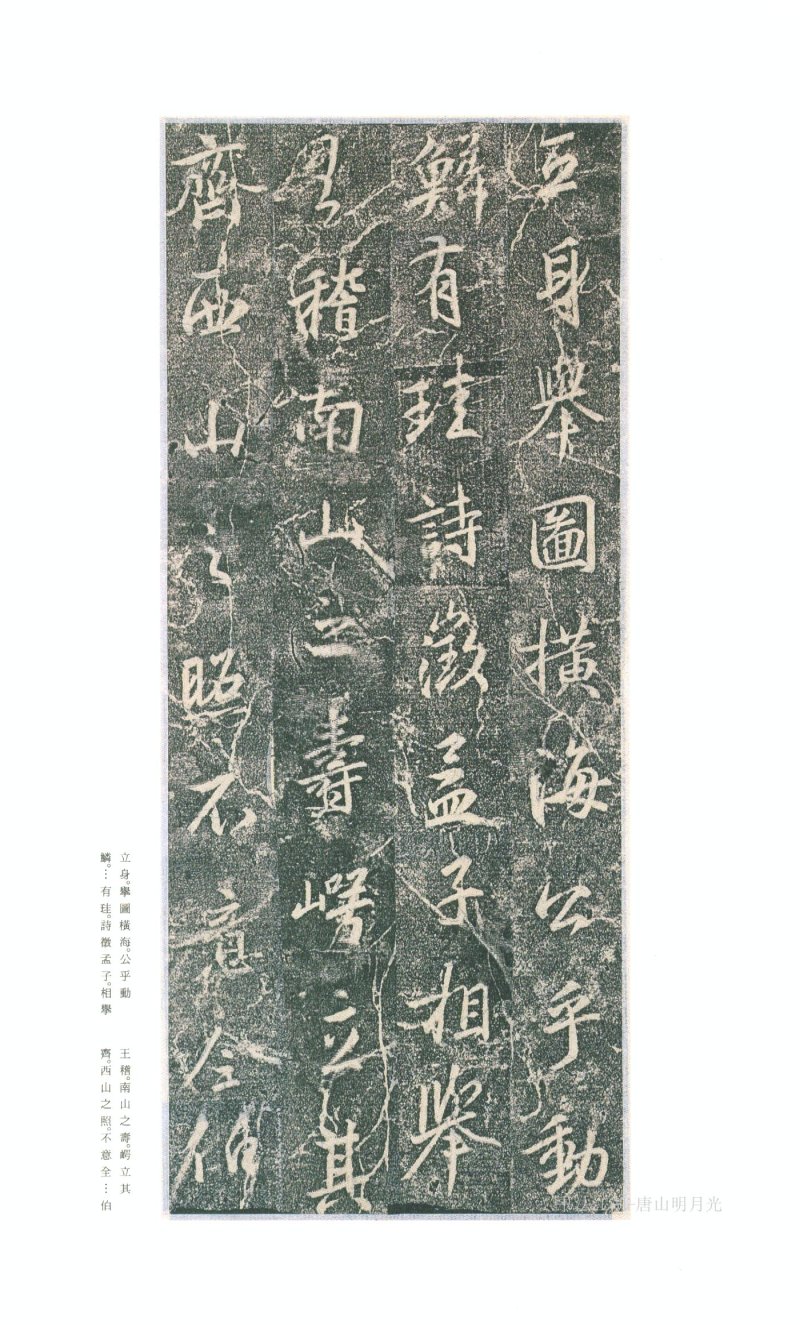 立身舉圖橫海公乎動
鱗有珪詩徵孟子相舉
王稽南山之壽崿立其
齊西山之照不意全伯
立身。舉圖橫海。公乎動
鱗。…有珪。詩徵孟子。相舉
王稽。南山之壽。崿立其
齊。西山之照。不意全…伯
唐山明月光